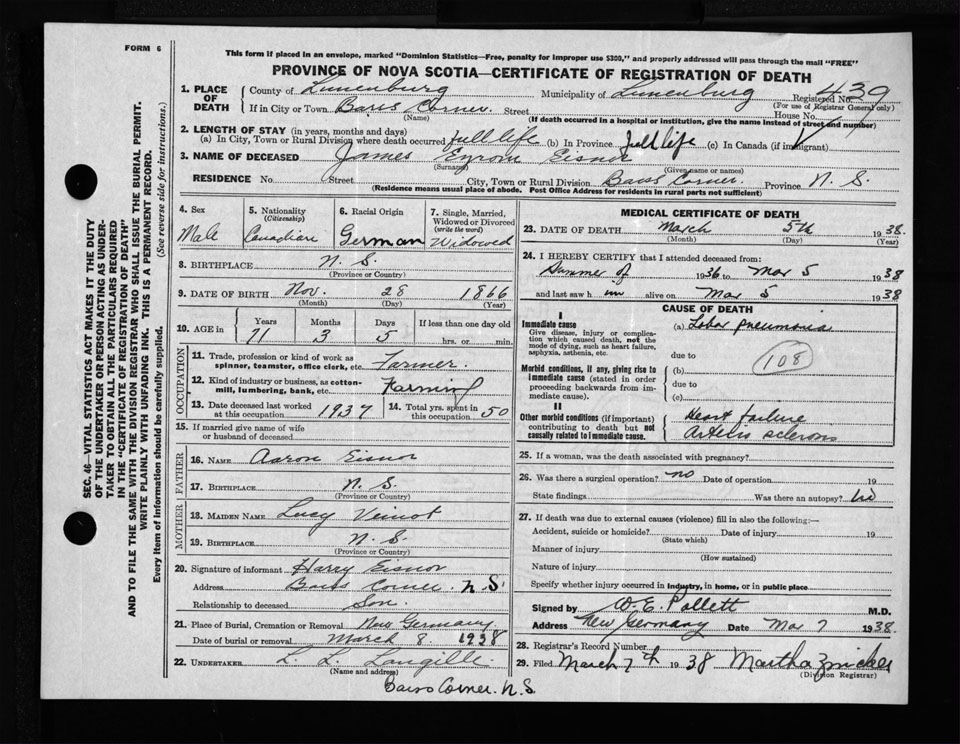 FORM 6
This form if placed in an envelope, marked "Dominion Statistics—Free, penalty for improper use $300," and properly addressed will pass through the mail "FREE"
PROVINCE OF NOVA SCOTIA—CERTIFICATE OF REGISTRATION OF DEATH
SEC. 46—VITAL STATISTICS ACT MAKES IT THE DUTY
OF THE UNDERTAKER OR PERSON ACTING AS UNDER-
TAKER TO OBTAIN ALL THE PARTICULARS REQUIRED
IN THE "CERTIFICATE OF REGISTRATION OF DEATH"
AND TO FILE THE SAME WITH THE DIVISION REGISTRAR WHO SHALL ISSUE THE BURIAL PERMIT.
WRITE PLAINLY WITH UNFADING INK. THIS IS A PERMANENT RECORD.
Every item of information should be carefully supplied. (See reverse side for instructions.)
1. PLACE OF DEATH County of Lunenburg Municipality of Lunenburg Registered No. 439
(For use of Registrar General only)
If in City or Town Barss Corner Street House No.
(Name) (If death occurred in a hospital or institution, give the name instead of street and number)
2. LENGTH OF STAY (in years, months and days)
(a) In City, Town or Rural Division where death occurred full life (b) In Province full life (c) In Canada (if immigrant)
3. NAME OF DECEASED James Eisnor
(Surname) (Given name or names)
RESIDENCE No. Street City, Town or Rural Division Barss Corner. Province N. S.
(Residence means usual place of abode. Post Office Address for residents in rural parts not sufficient)
4. Sex Male
5. Nationality (Citizenship) Canadian
6. Racial Origin German
7. Single, Married, Widowed or Divorced (write the word) Widowed
8. BIRTHPLACE N. S.
(Province or Country)
9. DATE OF BIRTH Nov. 28 1866
(Month) (Day) (Year)
10. AGE in Years Months Days If less than one day old
71 3 5 hrs. or min.
OCCUPATION
11. Trade, profession or kind of work as spinner, teamster, office clerk, etc. Farmer.
12. Kind of industry or business, as cotton-mill, lumbering, bank, etc. Farming
13. Date deceased last worked at this occupation 1937 14. Total yrs. spent in this occupation 50
15. If married give name of wife or husband of deceased
FATHER
16. NAME Aaron Eisnor
17. BIRTHPLACE N. S.
(Province or Country)
MOTHER
18. MAIDEN NAME Lucy Veinot
19. BIRTHPLACE N. S.
(Province or Country)
20. Signature of informant Harry Eisnor
Address Barss Corner N.S.
Relationship to deceased Son.
21. Place of Burial, Cremation or Removal New Germany.
Date of burial or removal March 8. 1938
22. UNDERTAKER L. L. Langille.
(Name and address)
Barss Corner. N.S.
MEDICAL CERTIFICATE OF DEATH
23. DATE OF DEATH March 5th 1938.
(Month) (Day) (Year)
24. I HEREBY CERTIFY that I attended deceased from:
Summer of 1936 to Mar 5 1938
and last saw h im alive on Mar 5 1938
CAUSE OF DEATH
I
Immediate cause
Give disease, injury or complication which caused death, not the mode of dying, such as heart failure, asphyxia, asthenia, etc.
(a) Lobar pneumonia
due to
Morbid conditions, if any, giving rise to immediate cause (stated in order proceeding backwards from immediate cause).
(b) 108
due to
(c)
II
Other morbid conditions (if important) contributing to death but not causally related to immediate cause.
Heart failure
Arterio sclerosis
25. If a woman, was the death associated with pregnancy?
26. Was there a surgical operation? no Date of operation 19
State findings Was there an autopsy? no
27. If death was due to external causes (violence) fill in also the following:—
Accident, suicide or homicide? Date of injury 19
(State which)
Manner of injury
(How sustained)
Nature of injury
Specify whether injury occurred in industry, in home, or in public place
Signed by Pollett M.D.
Address New Germany Date Mar 7 1938.
28. Registrar's Record Number
29. Filed March 7th 1938 Martha Zwicker
(Division Registrar)